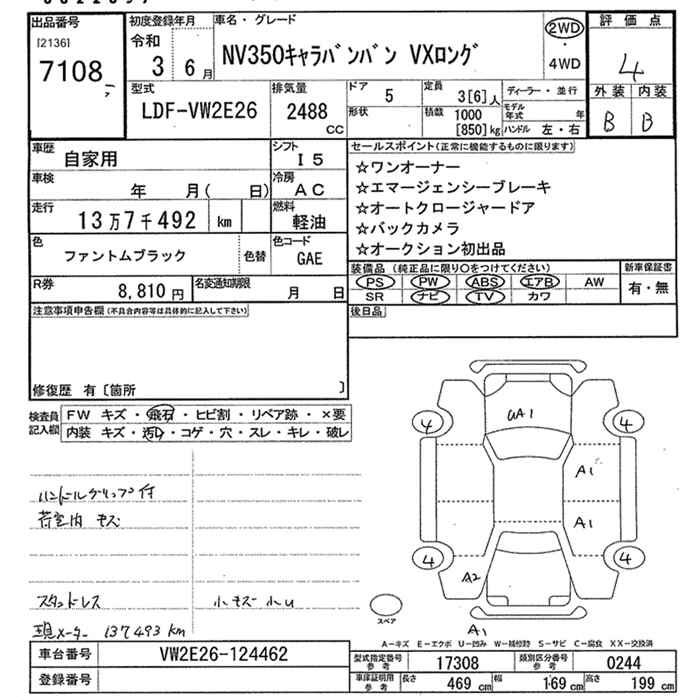 出品番号
[2136]
7108
初度登録年月
令和
3 6月
車名・グレード
NV350キャラバンバン VXロング
2WD
・
4WD
評価点
4
外装 内装
B B
型式
LDF-VW2E26
排気量
2488
CC
ドア 5
形状
定員 3[6]人
積載 1000
[850]kg
ディーラー・並行
モデル年式 年
ハンドル 左・右
車歴 自家用
シフト
I5
車検 年 月( 日)
冷房
AC
走行 13万7千492 km
燃料
軽油
色 ファントムブラック
色替
色コード
GAE
R券 8,810円
名変通知期限 月 日
セールスポイント(正常に機能するものに限ります)
☆ワンオーナー
☆エマージェンシーブレーキ
☆オートクロージャードア
☆バックカメラ
☆オークション初出品
装備品(純正品に限り○をつけてください)
PS PW ABS エアB AW
SR ナビ TV カワ
新車保証書
有・無
後日品
注意事項申告欄(不具合内容等は具体的に記入して下さい)
修復歴 有〔箇所 〕
検査員
記入欄
FW キズ・飛石・ヒビ割・リペア跡・×要
内装 キズ・汚レ・コゲ・穴・スレ・キレ・破レ
ハンドルグリップ付
荷室内 キズ
スタッドレス
小キズ 小U
現メーター 137493 km
UA1
4 4
A1
A1
4 4
A2
A1
スペア
A-キズ E-エクボ U-凹み W-補修跡 S-サビ C-腐食 XX-交換済
車台番号 VW2E26-124462
登録番号
型式指定番号
参考
17308
類別区分番号
参考
0244
車庫証明用
参考
長さ 469 cm
幅 169 cm
高さ 199 cm